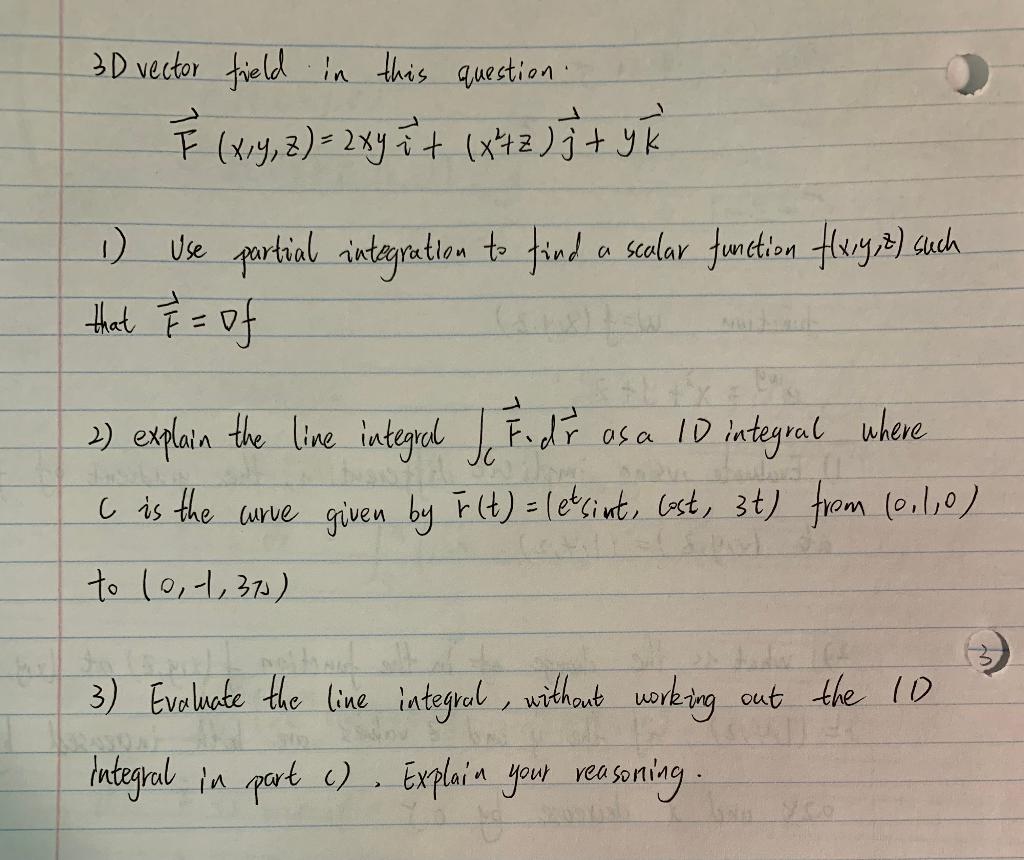 3D vector field in this question.
F⃗ (x,y,z) = 2xy i⃗ + (x²+z) j⃗ + y k⃗
1) Use partial integration to find a scalar function f(x,y,z) such
that F⃗ = ∇f
2) explain the line integral ∫_C F⃗·dr⃗ as a 1D integral where
C is the curve given by r̄(t) = (e^t sint, cost, 3t) from (0,1,0)
to (0,-1,3π)
3
3) Evaluate the line integral, without working out the 1D
integral in part c). Explain your reasoning.